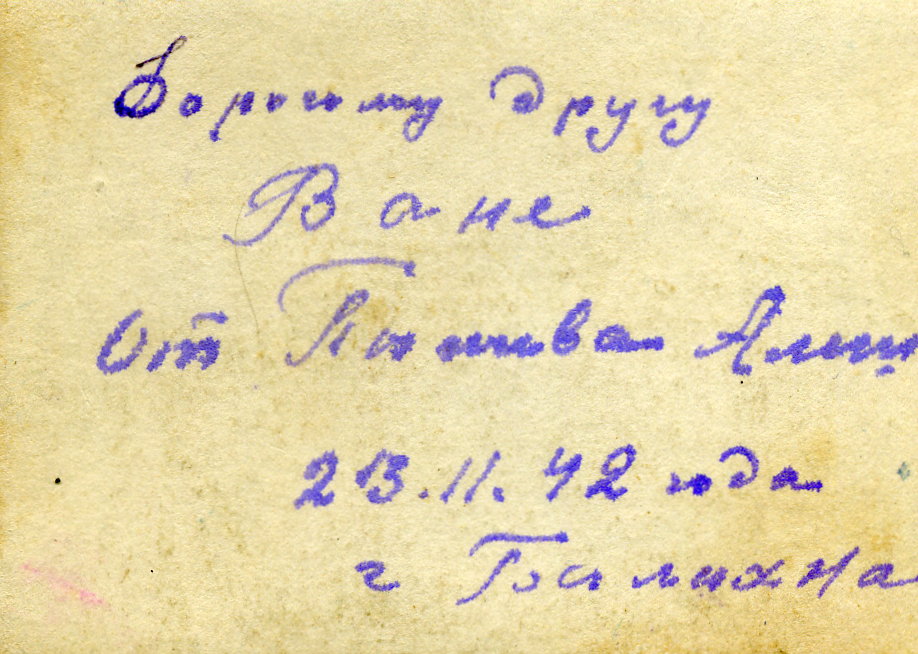 Дорогому другу
Ване
От
23.11.42 года
г Балахна